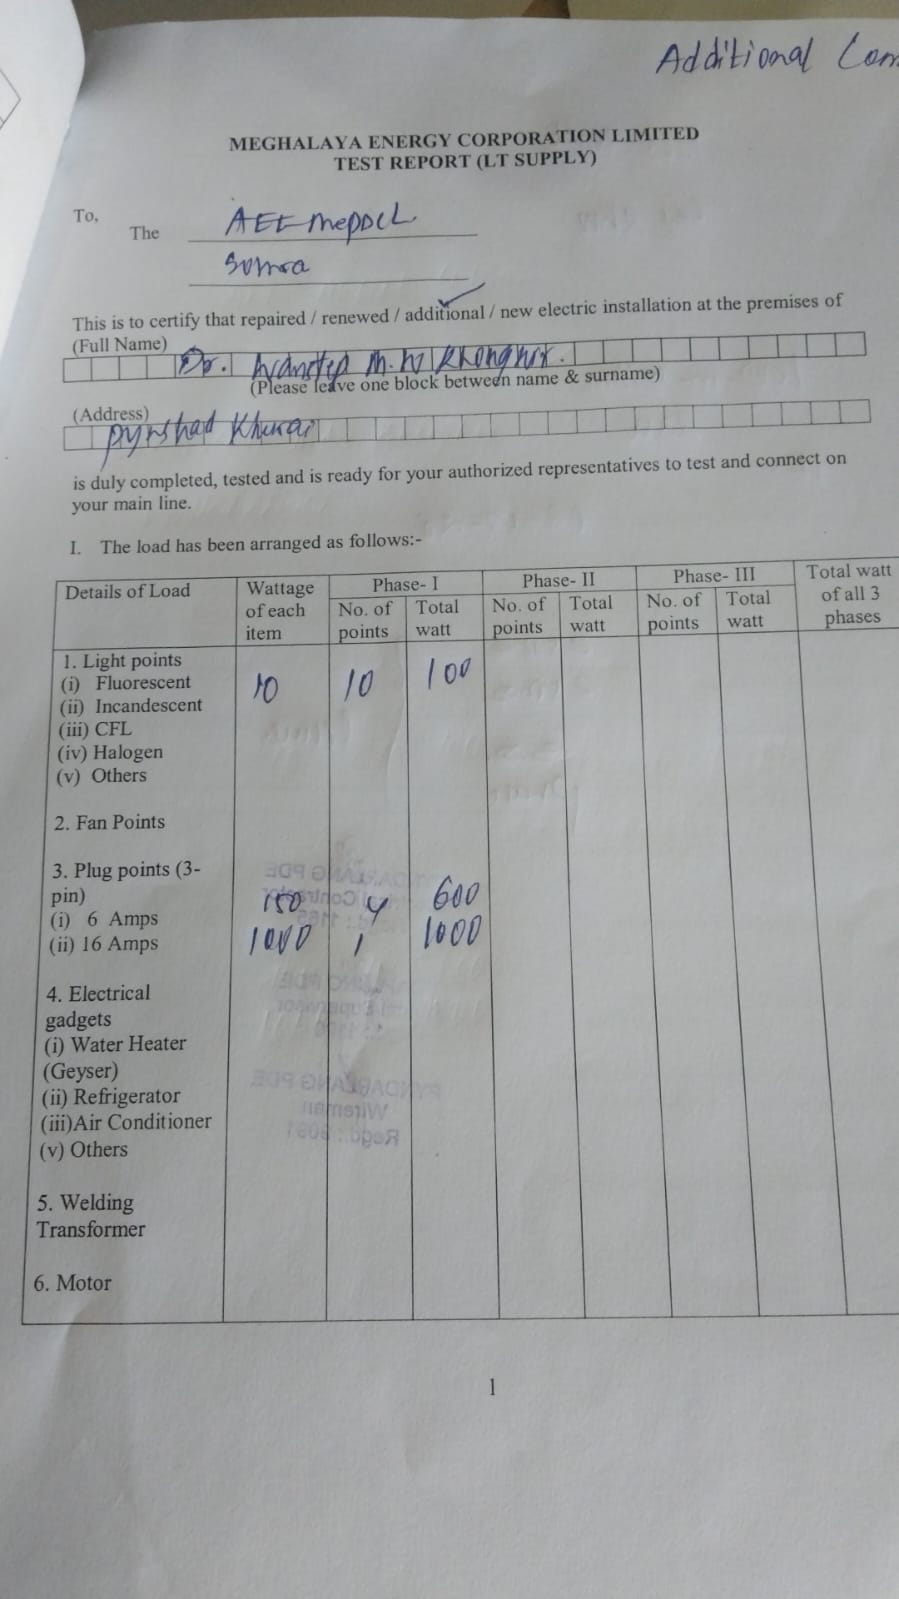 Additional
MEGHALAYA ENERGY CORPORATION LIMITED
TEST REPORT (LT SUPPLY)
To,
The AEE MePDCL
This is to certify that repaired / renewed / additional / new electric installation at the premises of
(Full Name)
Dr.
(Please leave one block between name & surname)
(Address)
Pynshad Khurai
is duly completed, tested and is ready for your authorized representatives to test and connect on
your main line.
I. The load has been arranged as follows:-
Details of Load Wattage of each item Phase- I Phase- II Phase- III Total watt of all 3 phases
No. of points Total watt No. of points Total watt No. of points Total watt
1. Light points
(i) Fluorescent 10 10 100
(ii) Incandescent
(iii) CFL
(iv) Halogen
(v) Others
2. Fan Points
3. Plug points (3-
pin)
(i) 6 Amps 150 4 600
(ii) 16 Amps 1000 1 1000
4. Electrical
gadgets
(i) Water Heater
(Geyser)
(ii) Refrigerator
(iii)Air Conditioner
(v) Others
5. Welding
Transformer
6. Motor
1